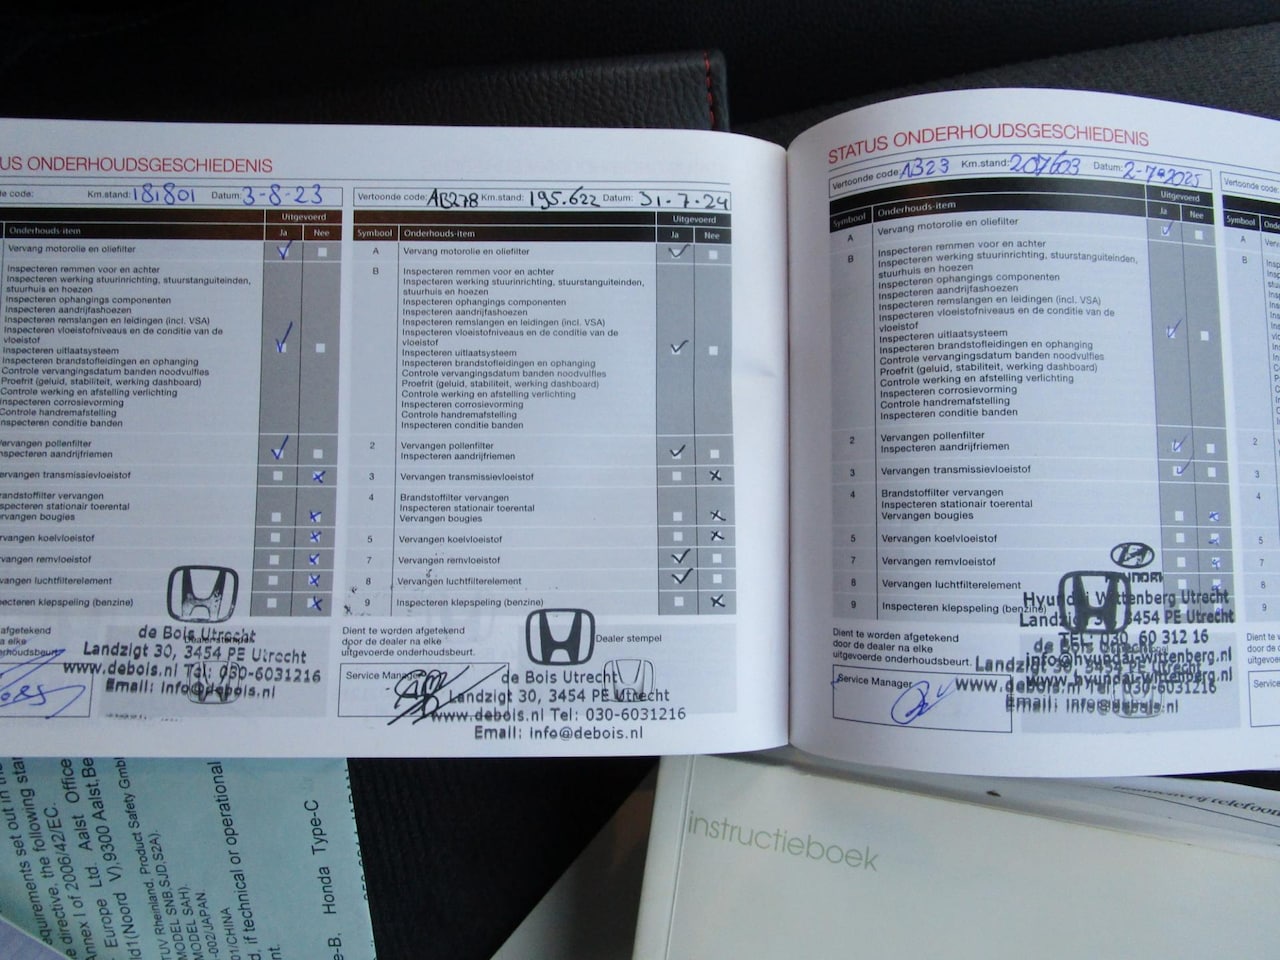 US ONDERHOUDSGESCHIEDENIS
de code: Km.stand: 181801 Datum: 3-8-23
Uitgevoerd
Onderhouds-item Ja Nee
Vervang motorolie en oliefilter
Inspecteren remmen voor en achter
Inspecteren werking stuurinrichting, stuurstanguiteinden,
stuurhuis en hoezen
Inspecteren ophangings componenten
Inspecteren aandrijfashoezen
Inspecteren remslangen en leidingen (incl. VSA)
Inspecteren vloeistofniveaus en de conditie van de
vloeistof
Inspecteren uitlaatsysteem
Inspecteren brandstofleidingen en ophanging
Controle vervangingsdatum banden noodvulfles
Proefrit (geluid, stabiliteit, werking dashboard)
Controle werking en afstelling verlichting
Inspecteren corrosievorming
Controle handremafstelling
nspecteren conditie banden
ervangen pollenfilter
nspecteren aandrijfriemen
ervangen transmissievloeistof
randstoffilter vervangen
nspecteren stationair toerental
ervangen bougies
ervangen koelvloeistof
ervangen remvloeistof
vangen luchtfilterelement
pecteren klepspeling (benzine)
afgetekend
na elke
erhoudsbeurt.
Dealer stempel
de Bois Utrecht
Landzigt 30, 3454 PE Utrecht
www.debois.nl Tel: 030-6031216
Email: info@debois.nl
Vertoonde code: AB278 Km.stand: 195.622 Datum: 31-7-24
Uitgevoerd
Symbool Onderhouds-item Ja Nee
A Vervang motorolie en oliefilter
B Inspecteren remmen voor en achter
Inspecteren werking stuurinrichting, stuurstanguiteinden,
stuurhuis en hoezen
Inspecteren ophangings componenten
Inspecteren aandrijfashoezen
Inspecteren remslangen en leidingen (incl. VSA)
Inspecteren vloeistofniveaus en de conditie van de
vloeistof
Inspecteren uitlaatsysteem
Inspecteren brandstofleidingen en ophanging
Controle vervangingsdatum banden noodvulfles
Proefrit (geluid, stabiliteit, werking dashboard)
Controle werking en afstelling verlichting
Inspecteren corrosievorming
Controle handremafstelling
Inspecteren conditie banden
2 Vervangen pollenfilter
Inspecteren aandrijfriemen
3 Vervangen transmissievloeistof
4 Brandstoffilter vervangen
Inspecteren stationair toerental
Vervangen bougies
5 Vervangen koelvloeistof
7 Vervangen remvloeistof
8 Vervangen luchtfilterelement
9 Inspecteren klepspeling (benzine)
Dient te worden afgetekend
door de dealer na elke
uitgevoerde onderhoudsbeurt.
Dealer stempel
Service Manager
de Bois Utrecht
Landzigt 30, 3454 PE Utrecht
www.debois.nl Tel: 030-6031216
Email: info@debois.nl
STATUS ONDERHOUDSGESCHIEDENIS
Vertoonde code: AB23 Km.stand: 207603 Datum: 2-7-2025
Uitgevoerd
Symbool Onderhouds-item Ja Nee
A Vervang motorolie en oliefilter
B Inspecteren remmen voor en achter
Inspecteren werking stuurinrichting, stuurstanguiteinden,
stuurhuis en hoezen
Inspecteren ophangings componenten
Inspecteren aandrijfashoezen
Inspecteren remslangen en leidingen (incl. VSA)
Inspecteren vloeistofniveaus en de conditie van de
vloeistof
Inspecteren uitlaatsysteem
Inspecteren brandstofleidingen en ophanging
Controle vervangingsdatum banden noodvulfles
Proefrit (geluid, stabiliteit, werking dashboard)
Controle werking en afstelling verlichting
Inspecteren corrosievorming
Controle handremafstelling
Inspecteren conditie banden
2 Vervangen pollenfilter
Inspecteren aandrijfriemen
3 Vervangen transmissievloeistof
4 Brandstoffilter vervangen
Inspecteren stationair toerental
Vervangen bougies
5 Vervangen koelvloeistof
7 Vervangen remvloeistof
8 Vervangen luchtfilterelement
9 Inspecteren klepspeling (benzine)
Dient te worden afgetekend
door de dealer na elke
uitgevoerde onderhoudsbeurt.
Service Manager
HYUNDAI
Hyundai Wittenberg Utrecht
Landzigt 30, 3454 PE Utrecht
TEL: 030 60 312 16
info@hyundai-wittenberg.nl
www.hyundai-wittenberg.nl
de Bois Utrecht
Landzigt 30, 3454 PE Utrecht
www.debois.nl Tel: 030-6031216
Email: info@debois.nl
Vertoonde code:
Symbool Onde
A Verv
B Insp
2
3
4
5
7
8
9
Dient te w
door de d
uitgevoer
Service
instructieboek
equirements set out in the
e directive, the following star
Annex I of 2006/42/EC.
Europe Ltd. Aalst Office
ld1(Noord V),9300 Aalst,Be
TUV Rheinland, Product Safety GmbH
MODEL SNB,SJD,S2A).
MODEL SAH).
-002/JAPAN
01/CHINA
d, if technical or operational
nt.
e-B, Honda Type-C